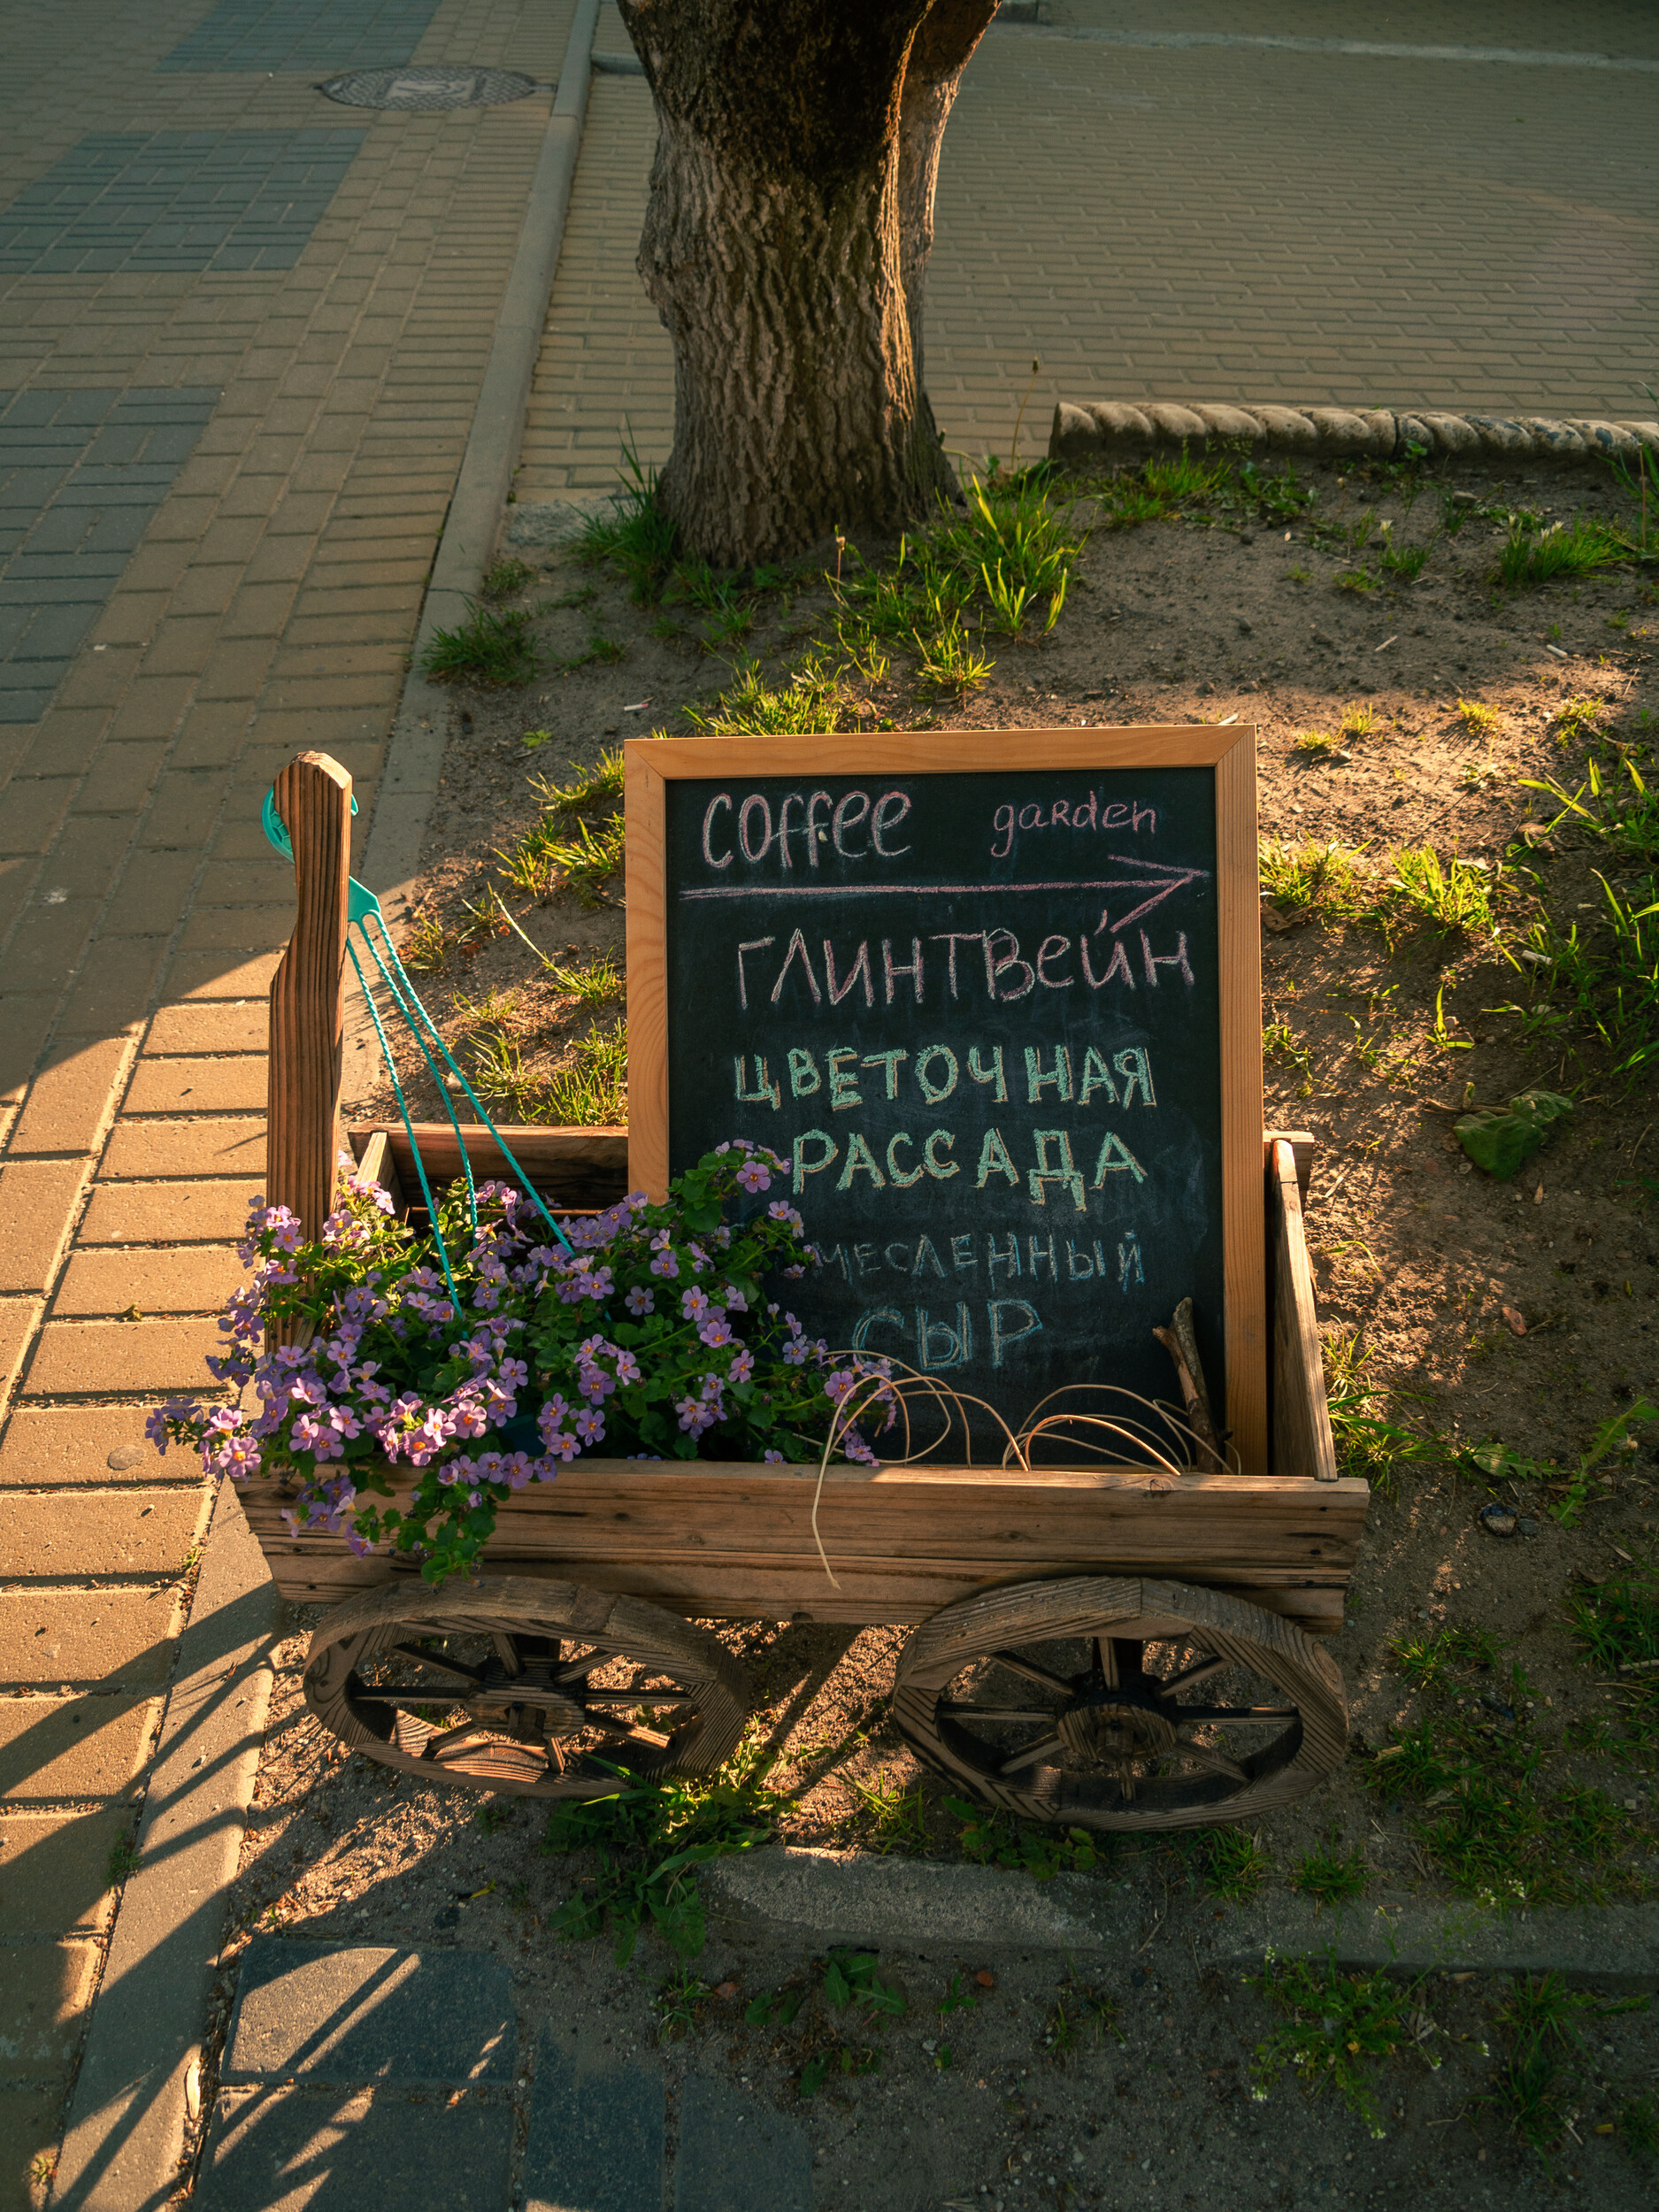 coffee garden
ГЛИНТВейН
ЦВЕТОЧНАЯ
РАССАДА
МЕСЛЕННЫЙ
СЫР